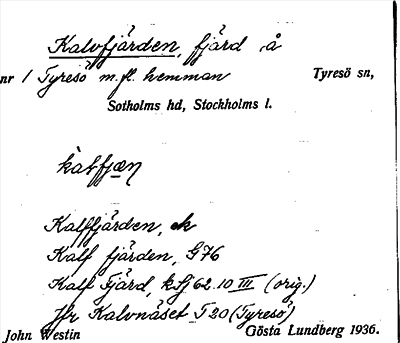 Kalvfjärden, fjärd å
nr 1 Tyresö m.fl. hemman Tyresö sn,
Sotholms hd, Stockholms l.
kalfjæɳ
Kalffjärden, ek
Kalf fjärden, G76
Kalf Fjärd, kSj 62.10 III (orig.)
Jfr Kalvnäset T20 (Tyresö)
John Westin Gösta Lundberg 1936.